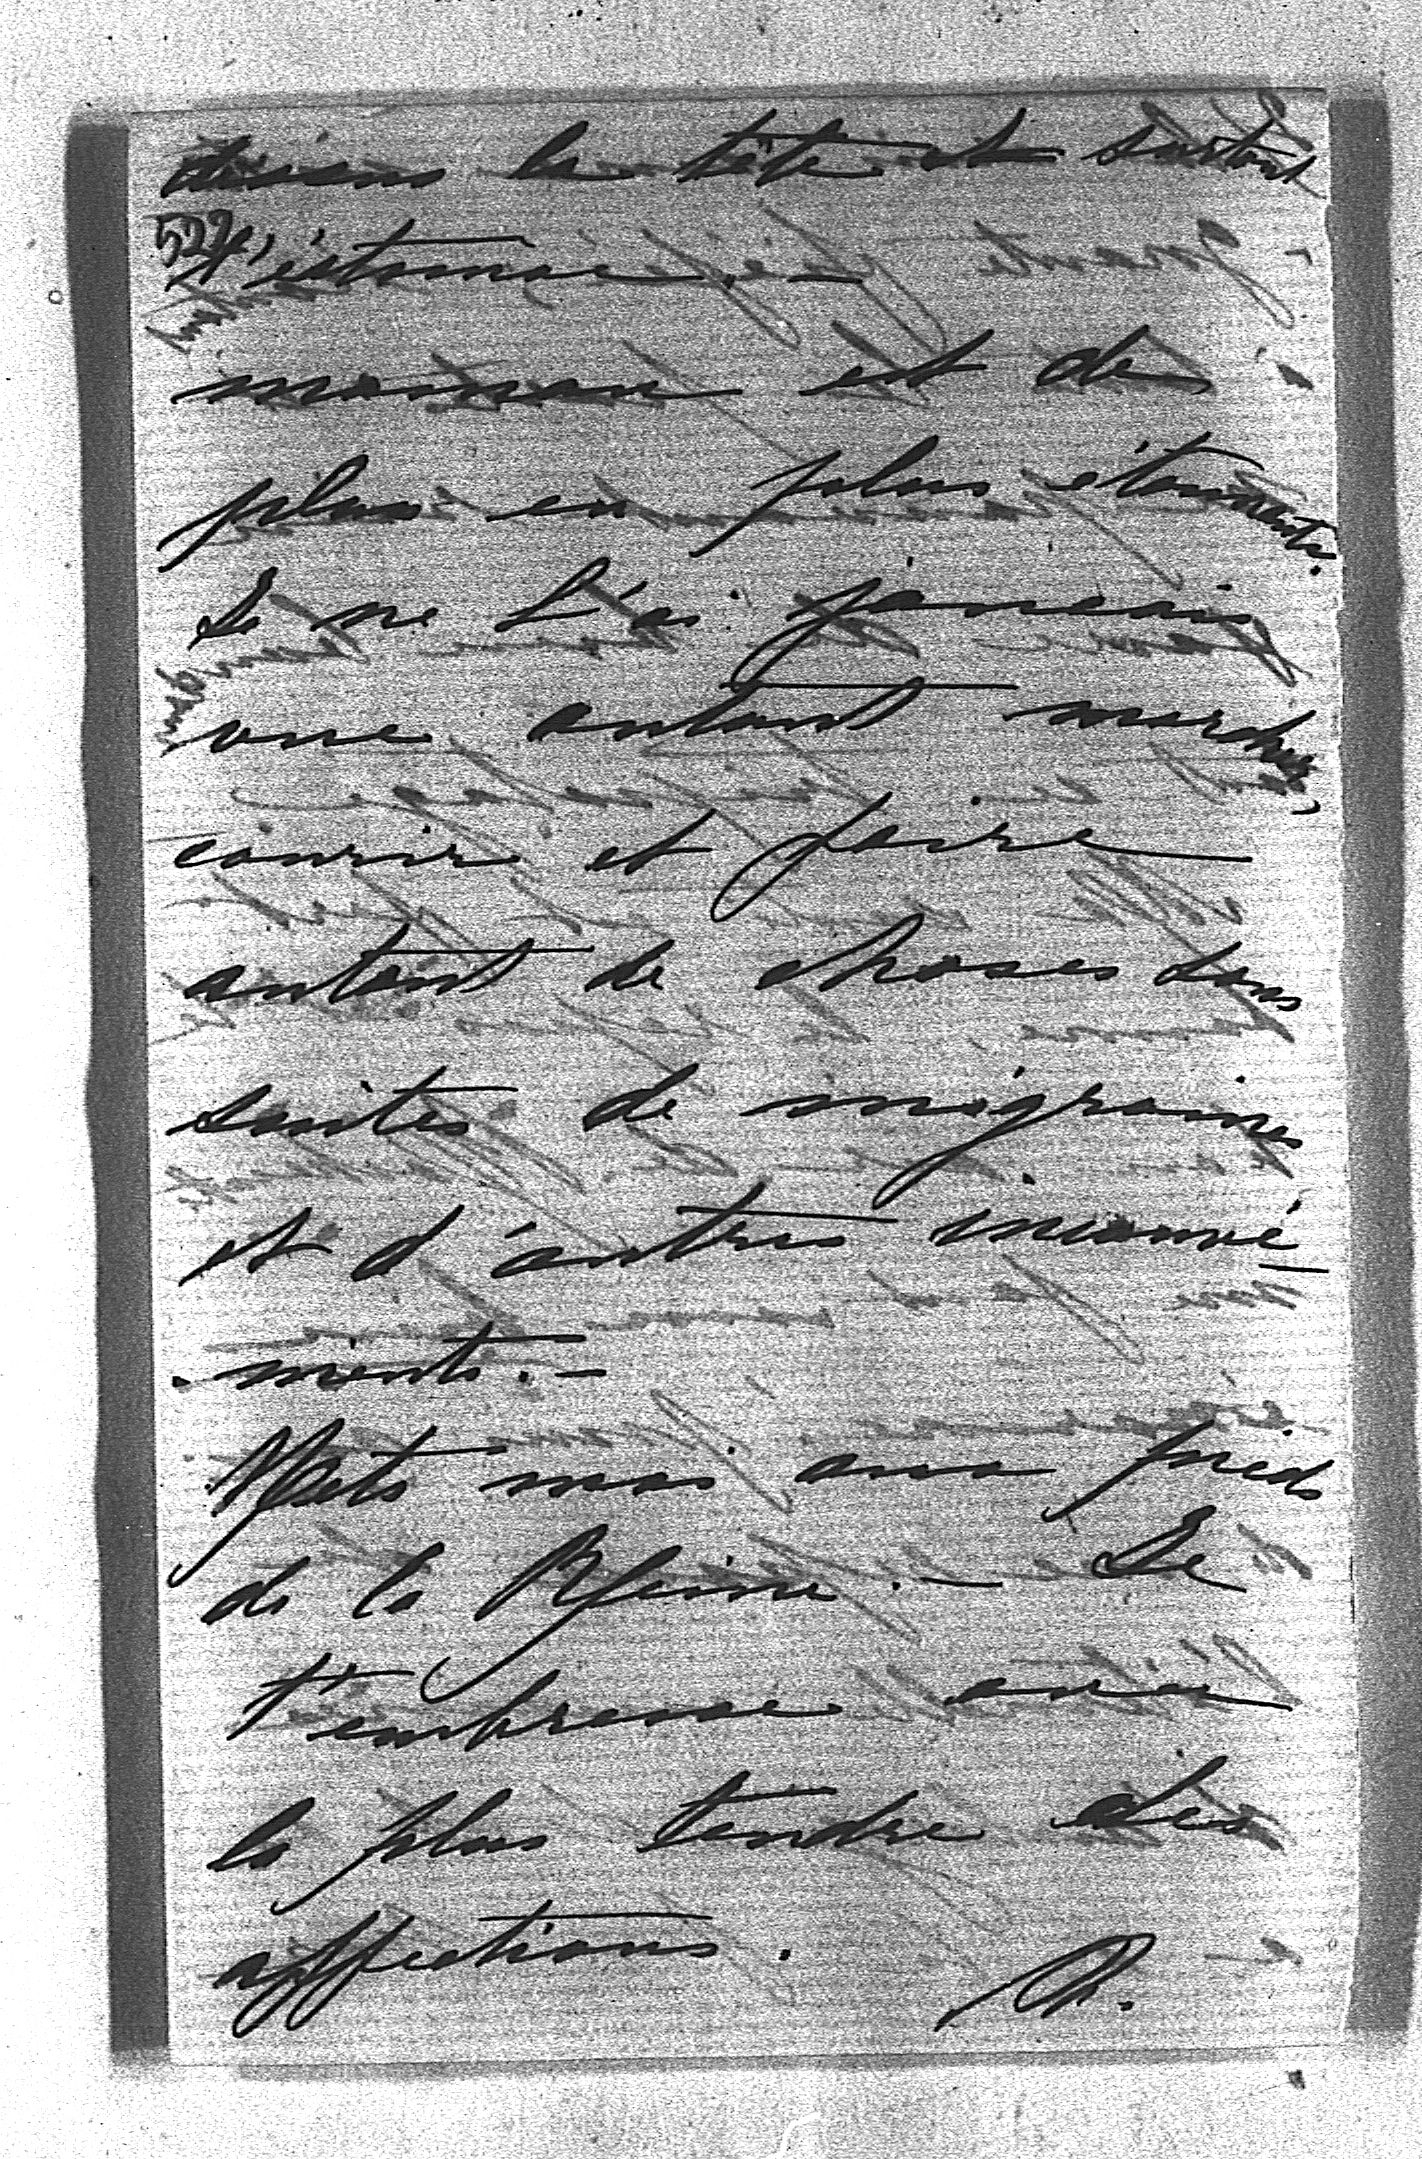 dans la tête et surtout
522
l'estomac. —
maman est de
plus en plus étonnante.
Je ne l'ai jamais
vue autant marcher,
courir et faire
autant de choses sans
suites de migraines
et d'autres inconvé
-nients. —
Mets moi aux pieds
de la Reine. — Je
t'embrasse avec
la plus tendre des
affections.